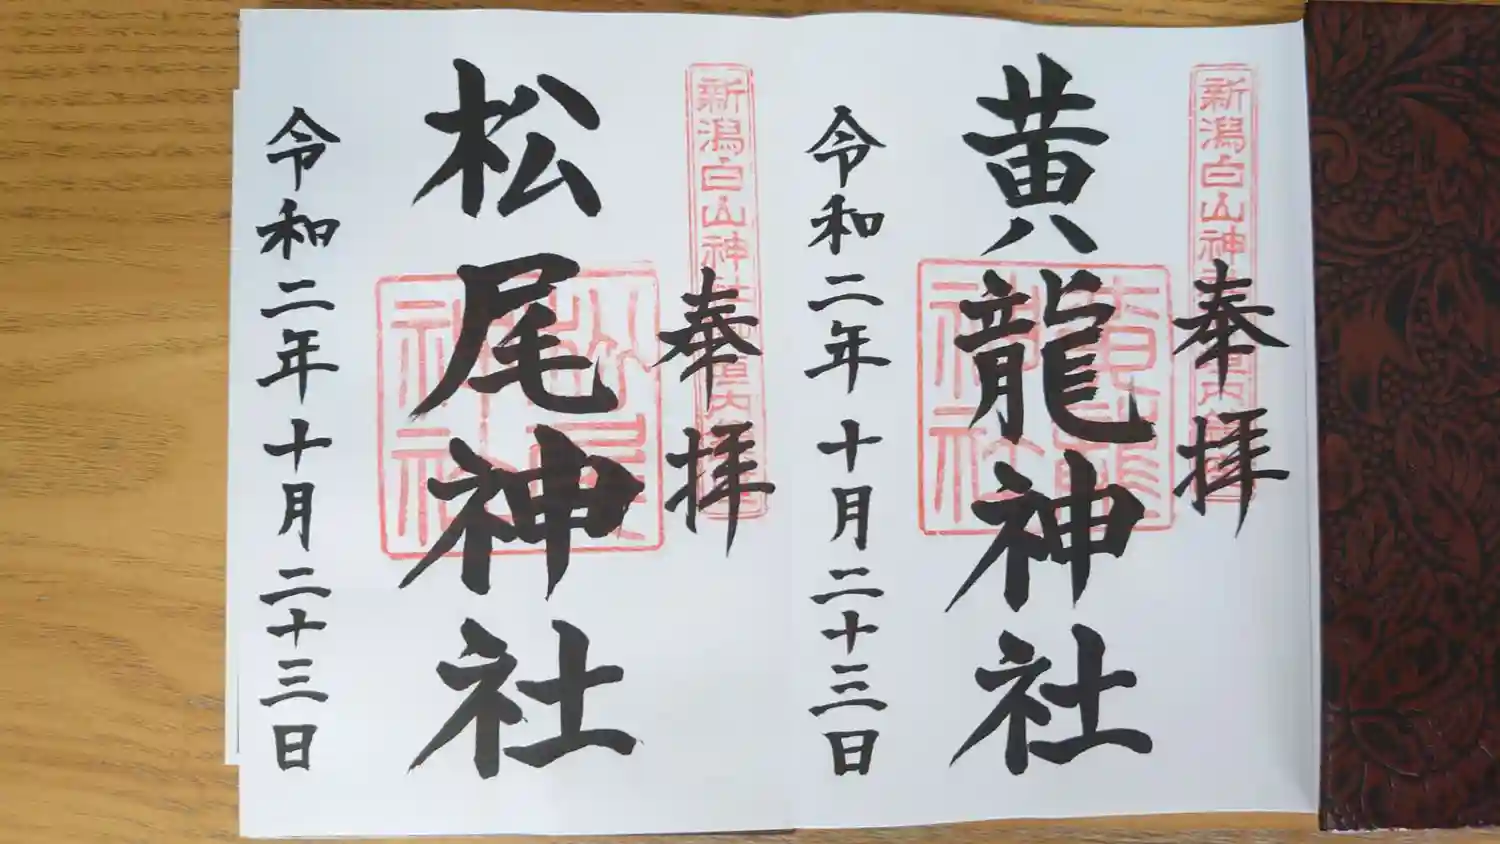 奉拝
新潟白山神社
黄龍神社
令和二年十月二十三日
奉拝
新潟白山神社
松尾神社
令和二年十月二十三日
松尾神社